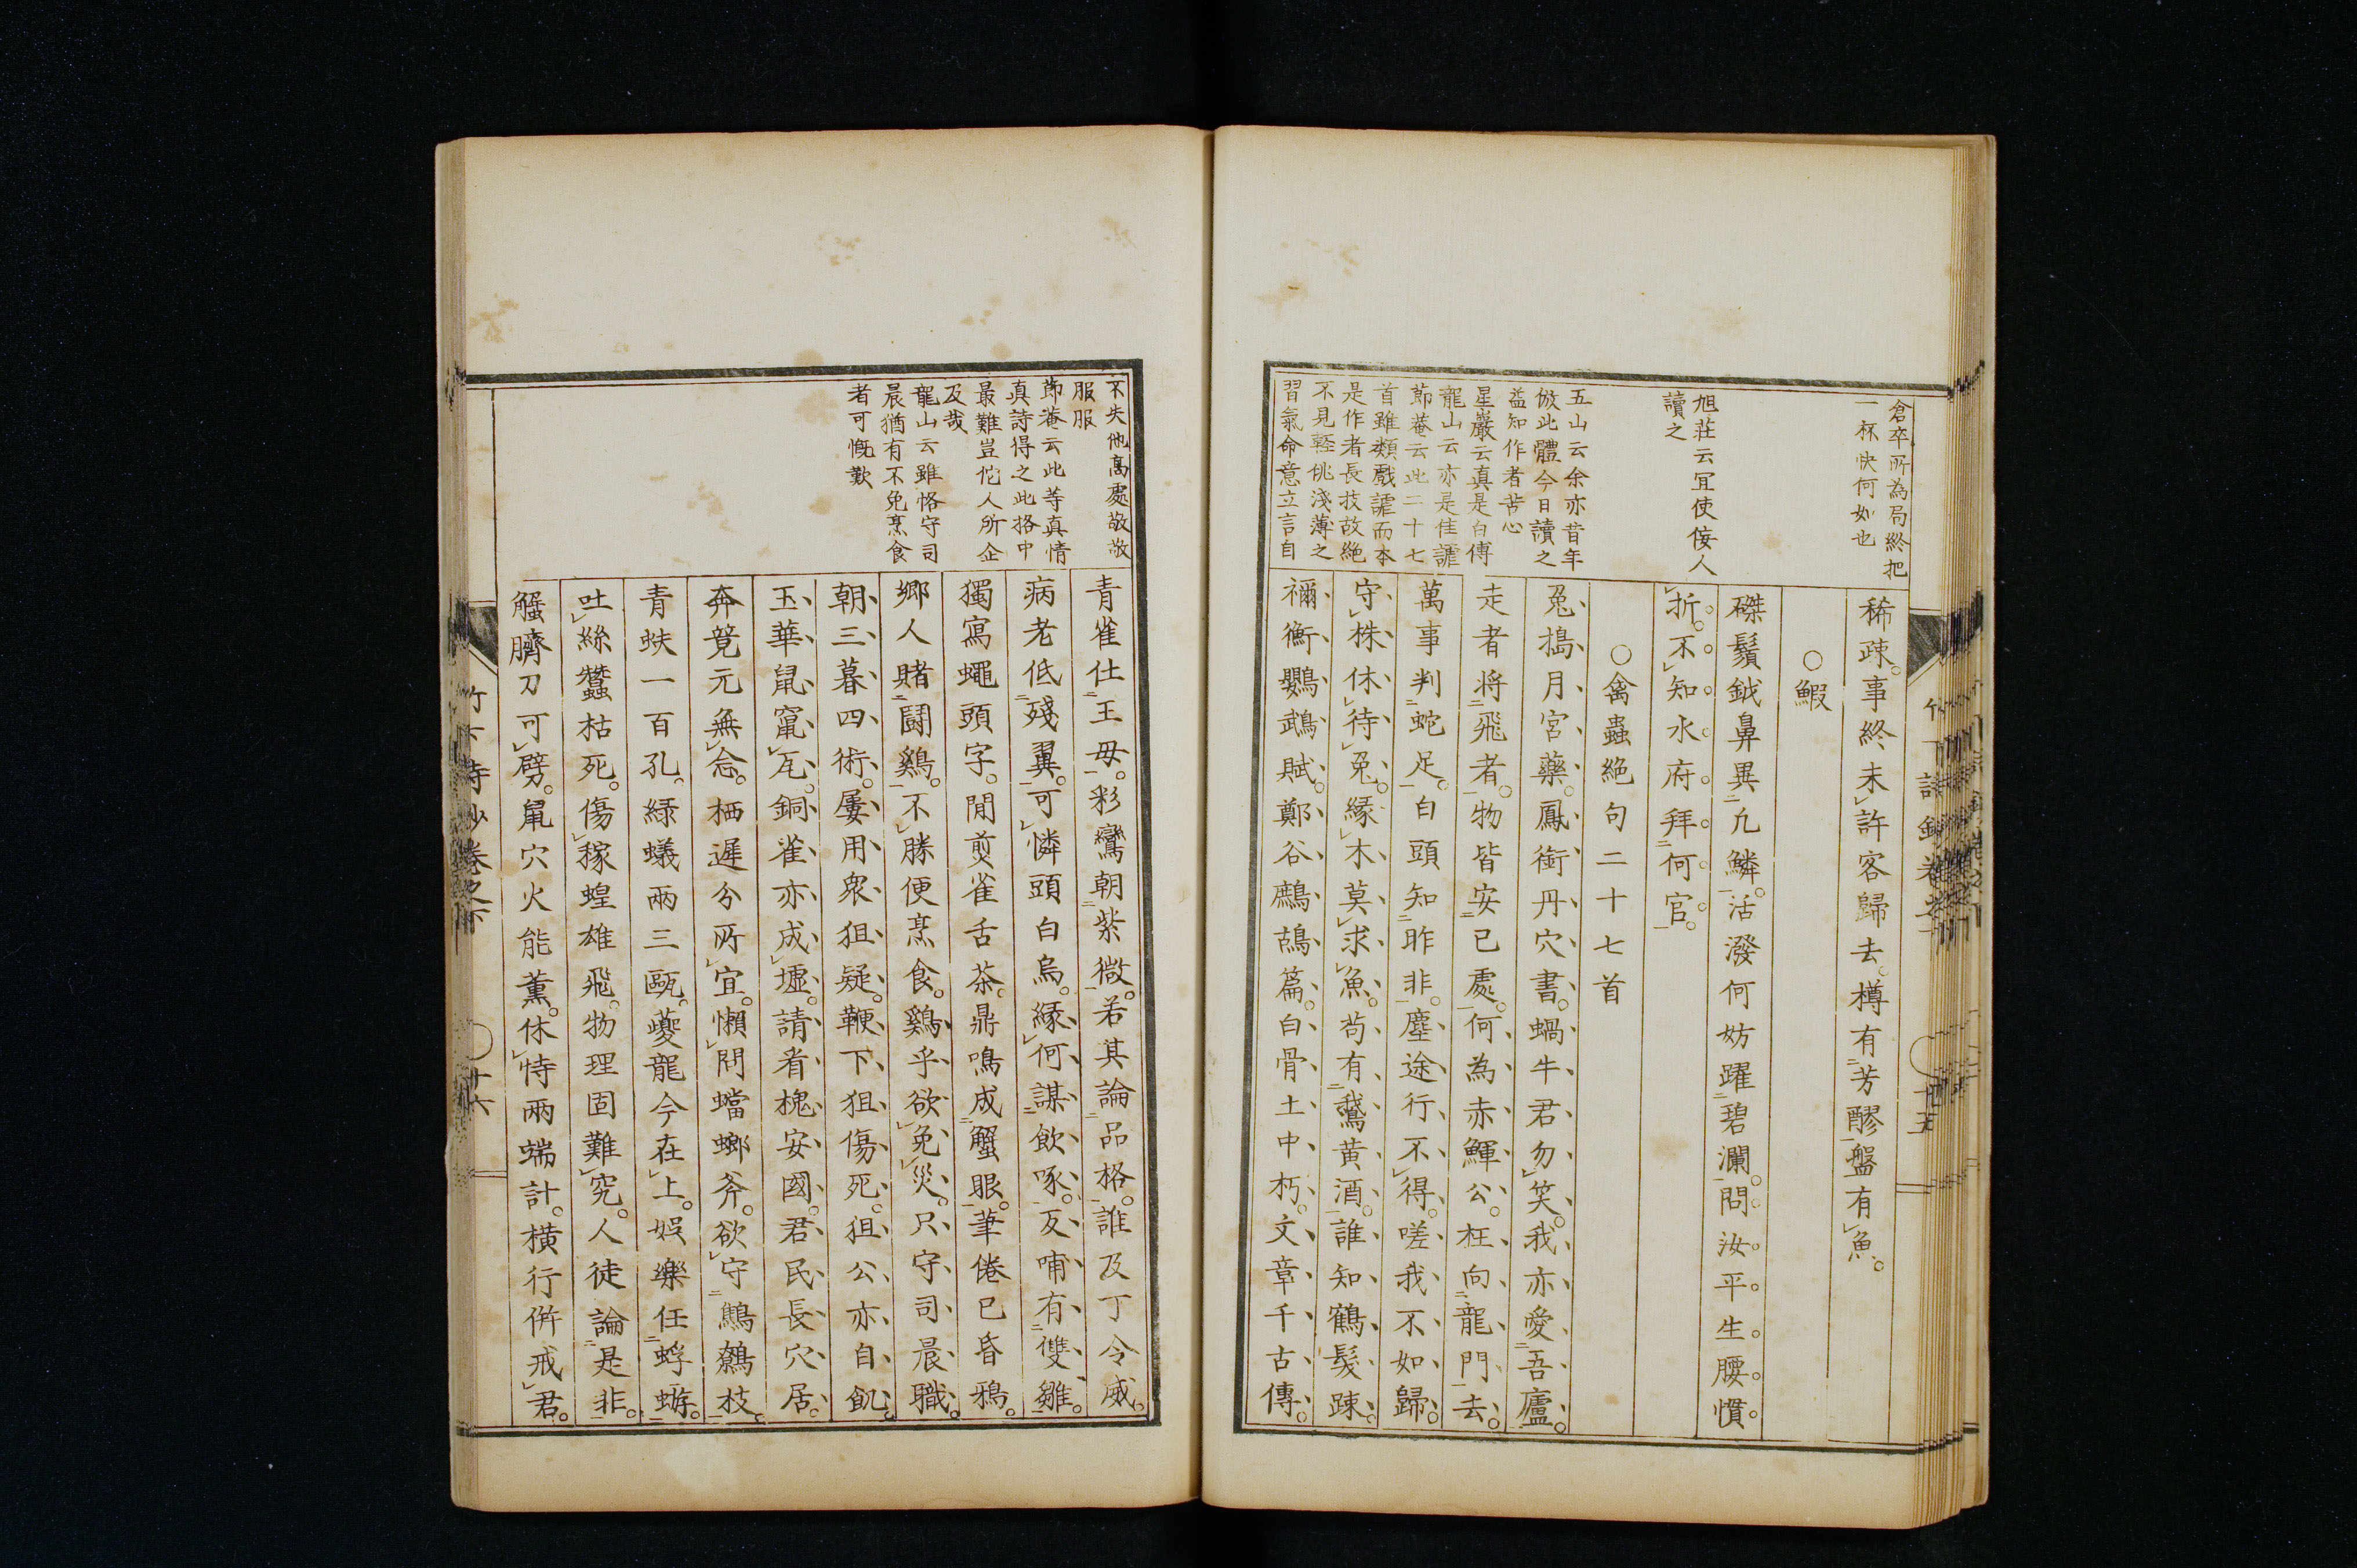 倉卒所為局終把
一杯快何如也
旭荘云宜使侫人
讀之
五山云余亦昔年
倣此體今日讀之
益知作者苦心
星巖云真是白傅
龍山云亦是佳謔
節菴云此二十七
首雖類戲謔而本
是作者長技故絶
不見輕佻淺薄之
習氣命意立言自
稀疎。事終未許客歸去。樽有芳醪盤有魚。
○鰕
磔鬚鉞鼻異凢鱗。活潑何妨躍碧瀾。問汝平生腰慣
折。不知水府拜何官。
○禽蟲絶句二十七首
兔搗月宮藥。鳳銜丹穴書。蝸牛君勿笑。我亦愛吾廬。
走者将飛者。物皆安己處。何為赤鯶公。枉向龍門去。
萬事判蛇足。白頭知昨非。塵途行不得。嗟我不如歸。
守株休待兔。縁木莫求魚。苟有鵞黄酒。誰知鶴髮踈。
禰衡鸚鵡賦。鄭谷鷓鴣篇。白骨土中朽。文章千古傳。
竹下詩鈔卷之下 十五
不失他高處敬敬
服服
節菴云此等真情
真詩得之此格中
最難豈佗人所企
及哉
龍山云雖恪守司
晨猶有不免烹食
者可慨歎
青雀仕王母。彩鸞朝紫微。若其論品格。誰及丁令威。
病老低殘翼。可憐頭白烏。縁何謀飲啄。反哺有雙雛。
獨寫蠅頭字。閒煎雀舌茶。鼎鳴成蟹眼。筆倦已昏鴉。
鄉人賭鬪鷄。不勝便烹食。鷄乎欲免災。只守司晨職。
朝三暮四術。屢用衆狙疑。鞭下狙傷死。狙公亦自飢。
玉華鼠竄瓦。銅雀亦成墟。請看槐安國。君民長穴居。
奔競元無念。栖遲分所宜。懶問蟷螂斧。欲守鷦鷯枝。
青蚨一百孔。緑蟻兩三甌。夔龍今在上。娯樂任蜉蝣。
吐絲蠶枯死。傷稼蝗雄飛。物理固難究。人徒論是非。
蟹臍刀可劈。鼠穴火能薫。休恃兩端計。横行併戒君。
竹下詩鈔卷之下 十六